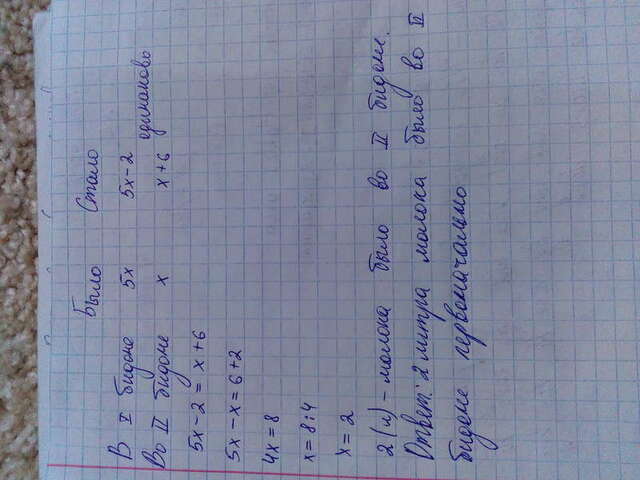 Было Стало
В I бидоне 5x 5x-2
Во II бидоне x x+6 одинаково
5x-2=x+6
5x-x=6+2
4x=8
x=8:4
x=2
2(л)-молока было во II бидоне.
Ответ: 2 литра молока было во II
бидоне первоначально